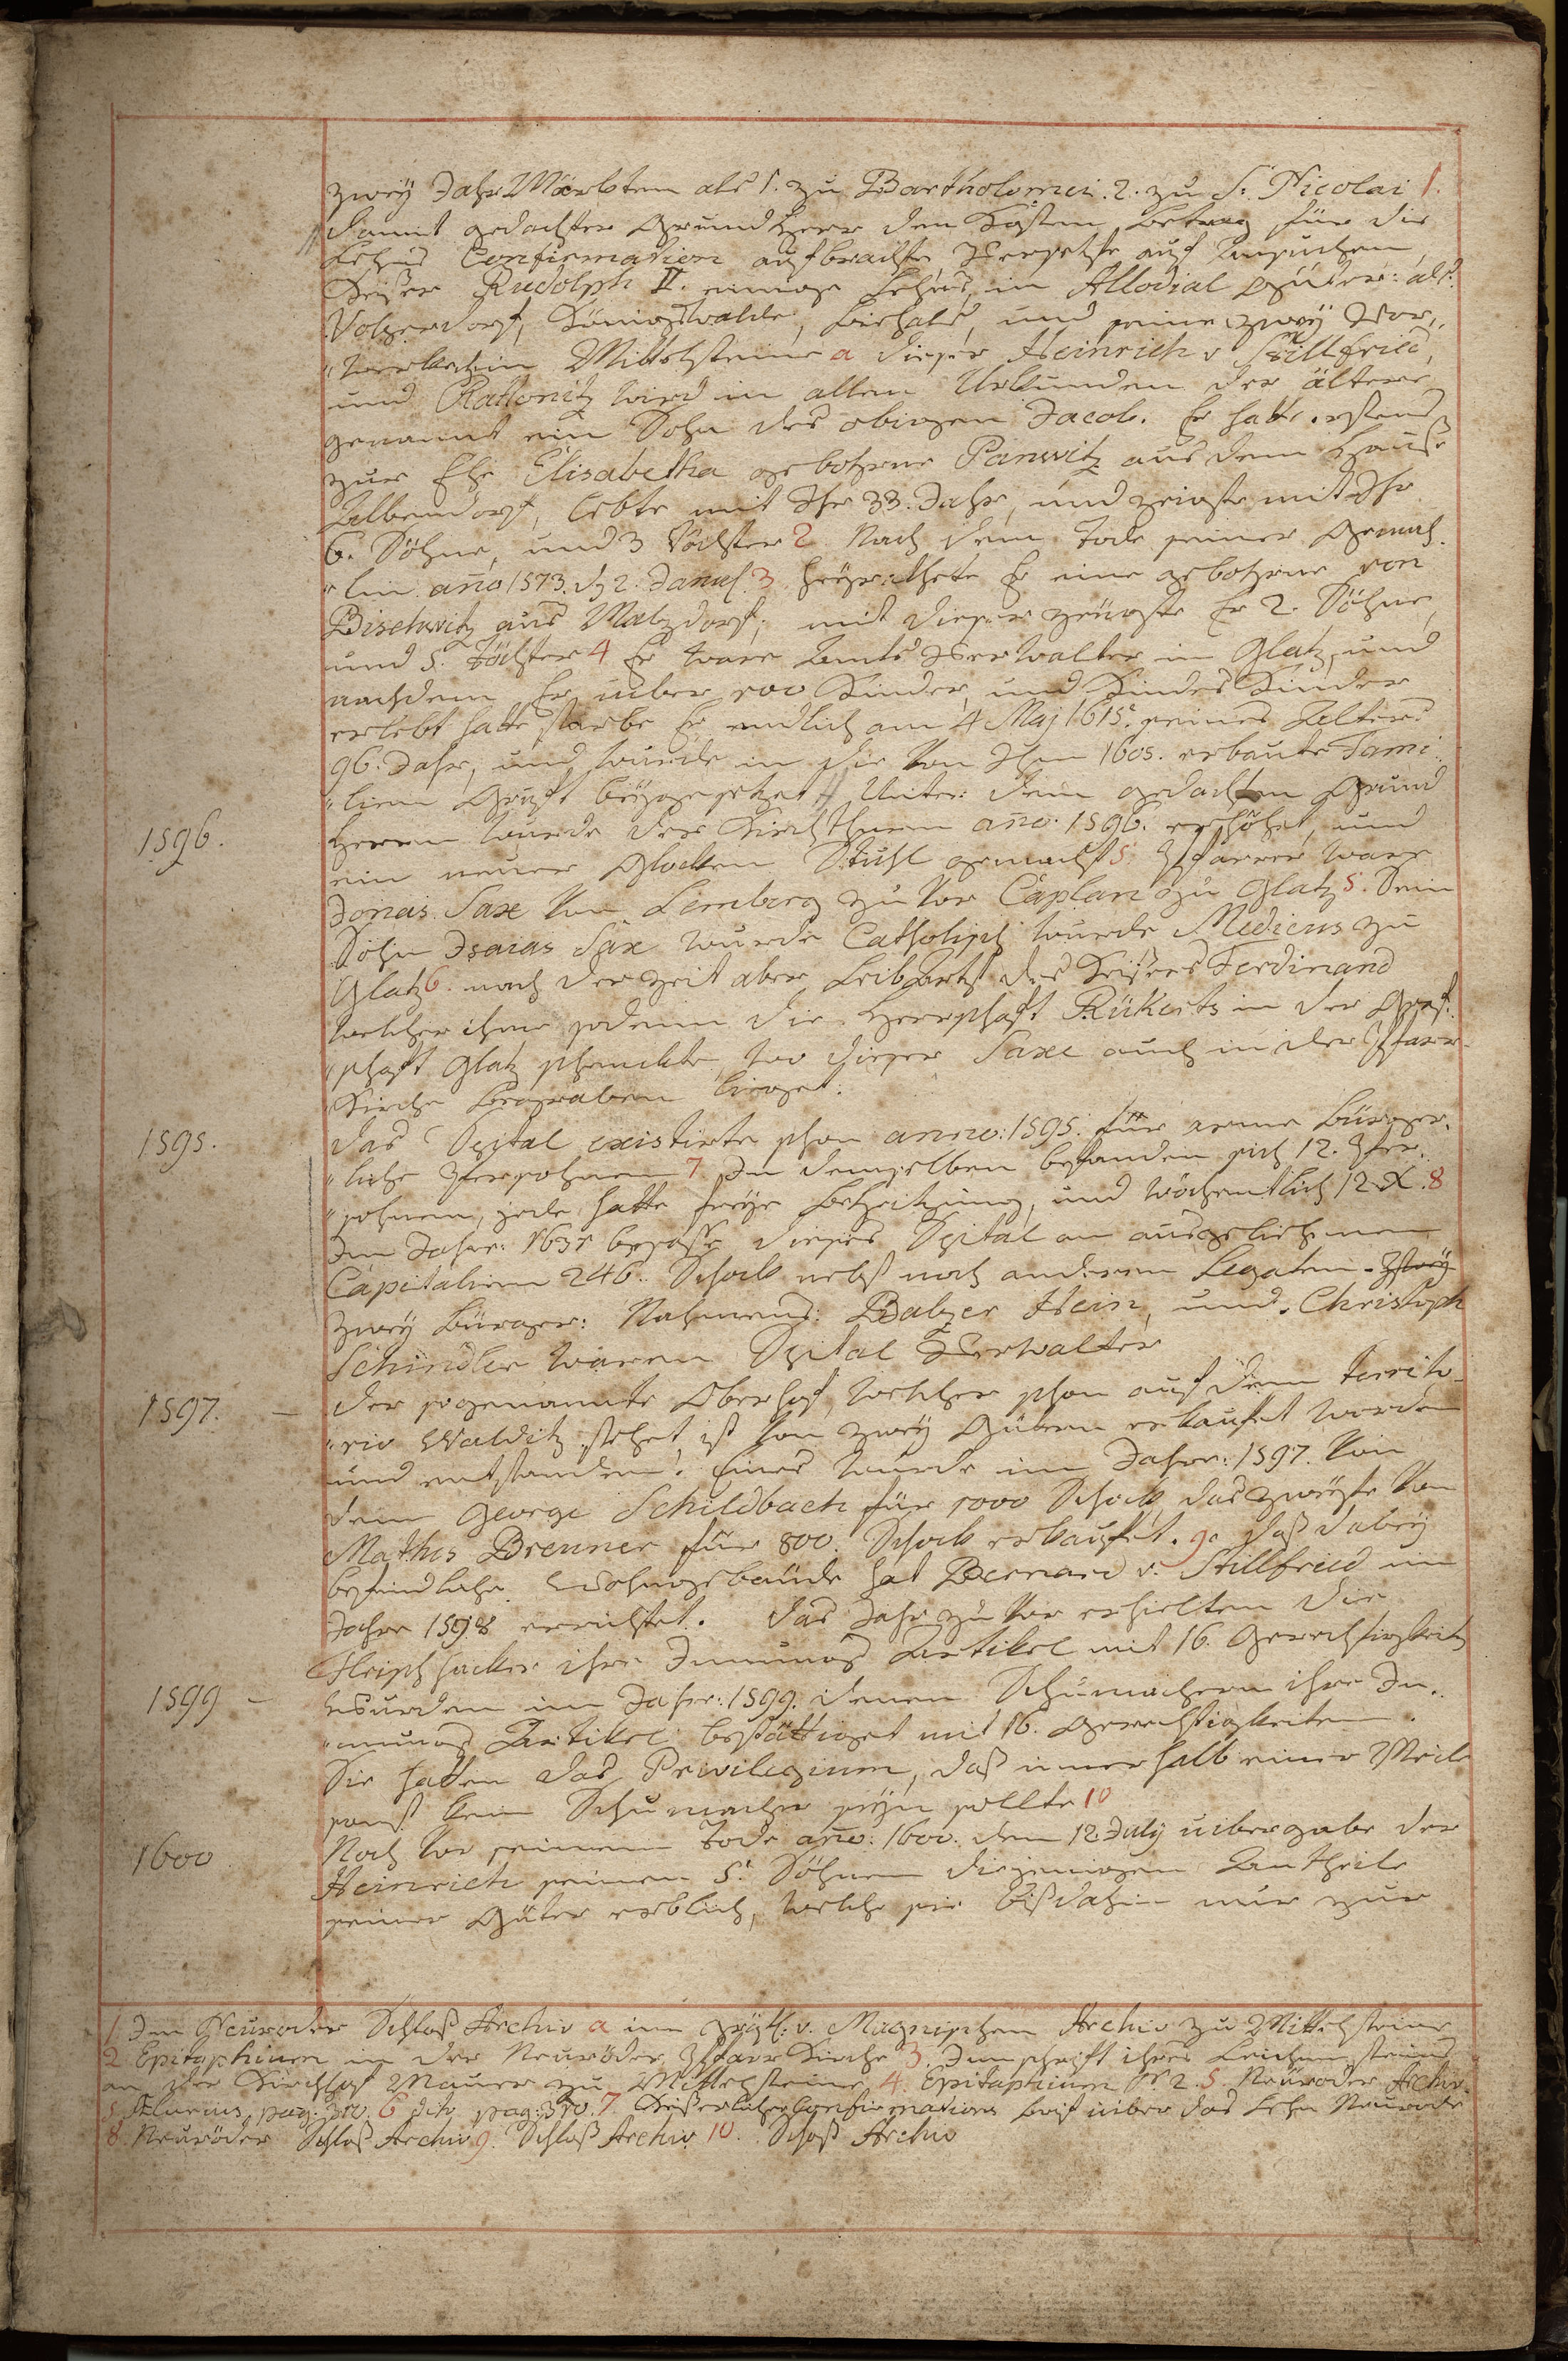 zweÿ Jahr Märckten als 1. zu Bartholomei. 2. zu S: Nicolai 1.
damit gedachter Grund Herr den Kosten Betrag für die
Lehns Confirmation aufbrachte versetzte auf Ansuchen
Keiser Rudolph II. einige Lehns in Allodial Güter: als:
Volperdorf, Königswalde, Biehals, und seine zweÿ Vor„
„wercke in Mittelsteine a dieser Heinrich v Stillfried,
und Rattonitz wird in allen Urkunden der ältere
genannt ein Sohn des obigen Jacob. Er hatte erstens
zur Ehe Elisabetha gebohrne Panwitz aus dem Hauße
Albendorf, lebte mit Ihr 33. Jahr, und zeigte mit Ihr
6. Söhne, und 3 Töchter 2. Nach dem Tode seiner Gemah„
„lin año 1573. d 2. Januf. 3 heÿrathete Er eine gebohrne von
Bischwitz aus Malzdorf, mit dieser zeugte Er 2. Söhne,
und 5. Töchter 4 Er ware Amts Verwalter in Glatz, und
nachdem Er uiber 100 Kinder, und Kindes Kinder
erlebt hatte starbe Er endlich am 4 Maj 1615. seines Alters
96. Jahr, und wurde in die von Ihm 1605. erbaute Fami„
„lien Gruft beÿgesetzet // Unter dem gedachten Grund
1596.
Herrn wurde der Kirchthurm año. 1596. erhöhet, und
ein neuer Glocken Stuhl gemacht 5 Pfarrer ware
Jonas Saxe von Lemberg zu vor Caplan zu Glatz 5. Sein
Sohn Isaias Saxe wurde Catholisch wurde Medicus zu
Glatz 6. nach der Zeit aber Leib Artzt des Keisers Ferdinand
welcher ihme sodenn die Herrschaft Rükerts in der Graf„
„schaft Glatz schenckte, wo dieser Saxe auch in der Pfarr„
„Kirche begraben lieget.
1595.
Das Spital existirte schon anno: 1595. für arme Bürger„
„liche Persohnen 7 In demselben befanden sich 12. Per„
„sohnen, jede hatte freÿe Beheitzung, und wochentlich 12 x. 8
Im Jahre: 1631 besasse dieses Spital an ausgeliehenen
Capitalien 246. Schock nebst noch anderen Legaten. Zweÿ
zweÿ Bürger: Nahmens: Balzer Hein, und Christoph
Schindler waren Spital Verwalter
1597. —
Der sogenannte Oberhof, welcher schon auf dem territo„
„rio Walditz stehet, ist von zweÿ Gütern erkauffet worden
und entstanden. Eines wurde im Jahre: 1597. von
dem George Schildbach für 1000 Schock das zweÿte von
Mathes Brenner für 800. Schock erkauffet. 9. das dabeÿ
befindliche Wohngebäude hat Bernard v. Stillfried im
Jahre 1598 errichtet. Das Jahr zu vor erhielten die
Fleischhacker ihre Innungs Artikel mit 16. Gerechtigkeit
1599 —
Wurden im Jahre: 1599. denen Schumachern ihre In„
„nungs Artikel bestättiget mit 16. Gerechtigkeiten.
Sie hatten das Privilegium, daß innerhalb einer Meile
sonst kein Schumacher seÿn sollte 10
1600
Noch vor seinem Tode año: 1600. den 12. Julÿ uibergabe der
Heinrich seinen 5. Söhnen diejenigen Antheile
seiner Güter erblich, welche sie bißdahin nur zur
1 Im Neuroder Schloß Archiv a im gräfl: v. Magnischen Archiv zu Mittelsteine
2 Epitaphium in der Neuröder Pfarr Kirche 3. Innschrift ihres Leichensteins
an der Kirchhof Mauer zu Mittelsteine 4. Epitaphium N: 2. 5. Neuroder Archiv.
5. Ælurius pag: 310. 6 dito pag: 310. 7. Keiserlicher Confirmations Brif uiber das Lehn Neurode
8. Neuröder Schloß Archiv 9. Schloß Archiv 10. Schloß Archiv